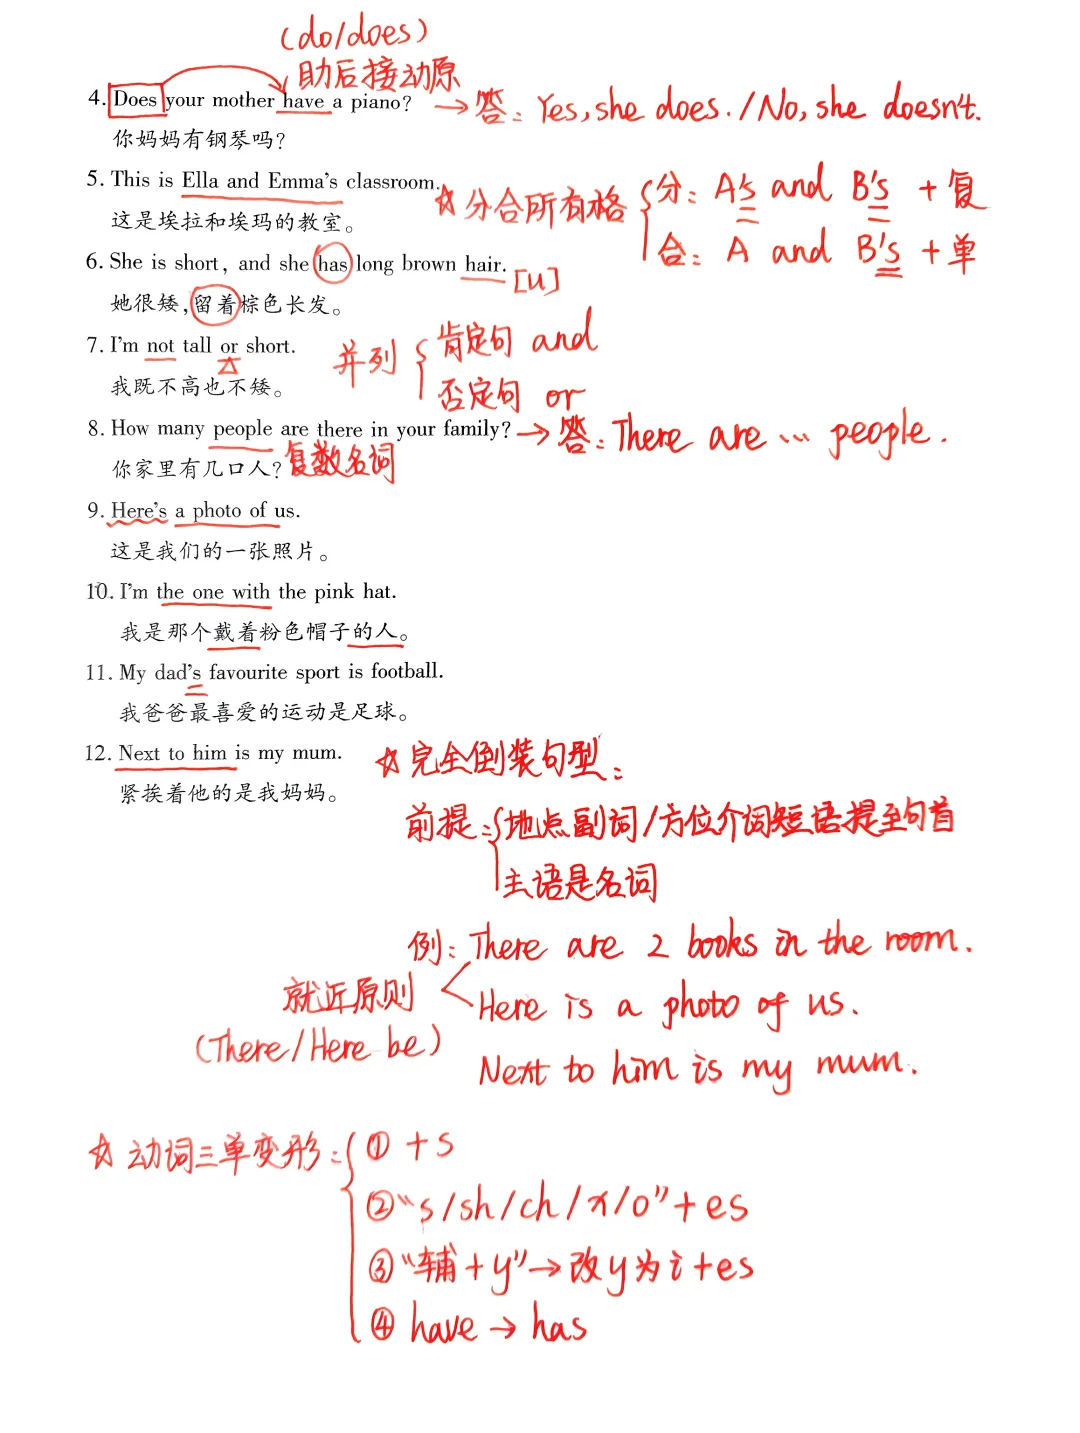 (do/does)
助后接动原
4. Does your mother have a piano? → 答: Yes, she does. / No, she doesn't.
你妈妈有钢琴吗?
5. This is Ella and Emma's classroom.
☆分合所有格 { 分: A's and B's + 复
这是埃拉和埃玛的教室。
合: A and B's + 单
6. She is short, and she has long brown hair. [U]
她很矮,留着棕色长发。
7. I'm not tall or short.
并列 { 肯定句 and
我既不高也不矮。
否定句 or
8. How many people are there in your family? → 答: There are … people.
你家里有几口人? 复数名词
9. Here's a photo of us.
这是我们的一张照片。
10. I'm the one with the pink hat.
我是那个戴着粉色帽子的人。
11. My dad's favourite sport is football.
我爸爸最喜爱的运动是足球。
12. Next to him is my mum.
☆完全倒装句型:
紧挨着他的是我妈妈。
前提: { 地点副词/方位介词短语提至句首
主语是名词
例: There are 2 books in the room.
就近原则
Here is a photo of us.
(There/Here be)
Next to him is my mum.
☆动词三单变形: { ① + s
② “s/sh/ch/x/o” + es
③ “辅+y” → 改y为i+es
④ have → has